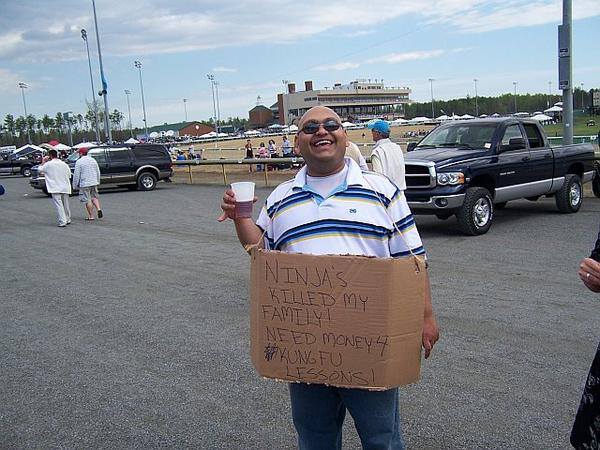 NINJA'S
KILLED MY
FAMILY!
NEED MONEY 4
KUNG FU
LESSONS!